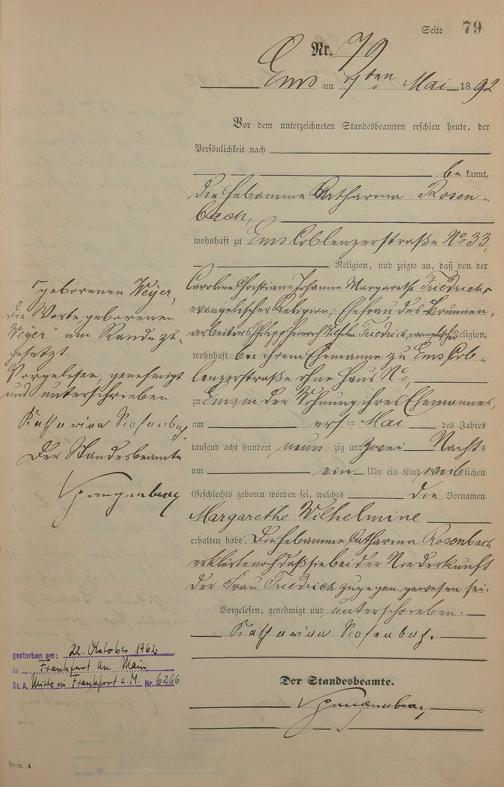 Seite 79
Nr. 79
Ems am ten Mai 1892
Vor dem unterzeichneten Standesbeamten erschien heute, der
Persönlichkeit nach
be kannt,
die Hebamme Katharina Rosen-
bach,
wohnhaft zu Ems Coblenzerstraße No 33,
Religion, und zeigte an, daß von der
Caroline Christiane Johanne Margarethe Friedrichs
evangelischer Religion, Ehefrau des Brunnen-
arbeiters Philipp Heinrich Wilhelm Friedrich, evangelischer Religion,
wohnhaft bei ihrem Ehemanne zu Ems Cob-
lenzerstraße ohne Haus No,
zu Ems in der Wohnung ihres Ehemannes,
am ersten Mai des Jahres
tausend acht hundert neun zig und zwei Nachts
um ein Uhr ein Kind weiblichen
Geschlechts geboren worden sei, welches die Vornamen
Margarethe Wilhelmine
erhalten habe. Die Hebamme Katharina Rosenbach
erklärte noch daß sie bei der Niederkunft
der Frau Friedrich zugegen gewesen sei.
Vorgelesen, genehmigt und unterschrieben.
Katharina Rosenbach.
Der Standesbeamte.
Spangenberg
"geborenen Weyer,
die Worte geborenen
Weyer" am Rande zu-
gesetzt.
Vorgelesen, genehmigt
und unterschrieben
Katharina Rosenbach.
Der Standesbeamte
Spangenberg
gestorben am: 22. Oktober 1962
in Frankfurt am Main
St. A. Mitte in Frankfurt a. M. Nr. 6266
Form. A.